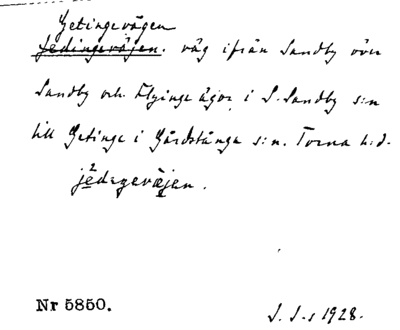 Getingevägen
Jedingevägen. väg ifrån Sandby över
Sandby och Flyinge ägor i S. Sandby s:n
till Getinge i Gårdstånga s:n. Torna h:d.
jèdegevæjen.
Nr 5850.
S. S-s 1928.